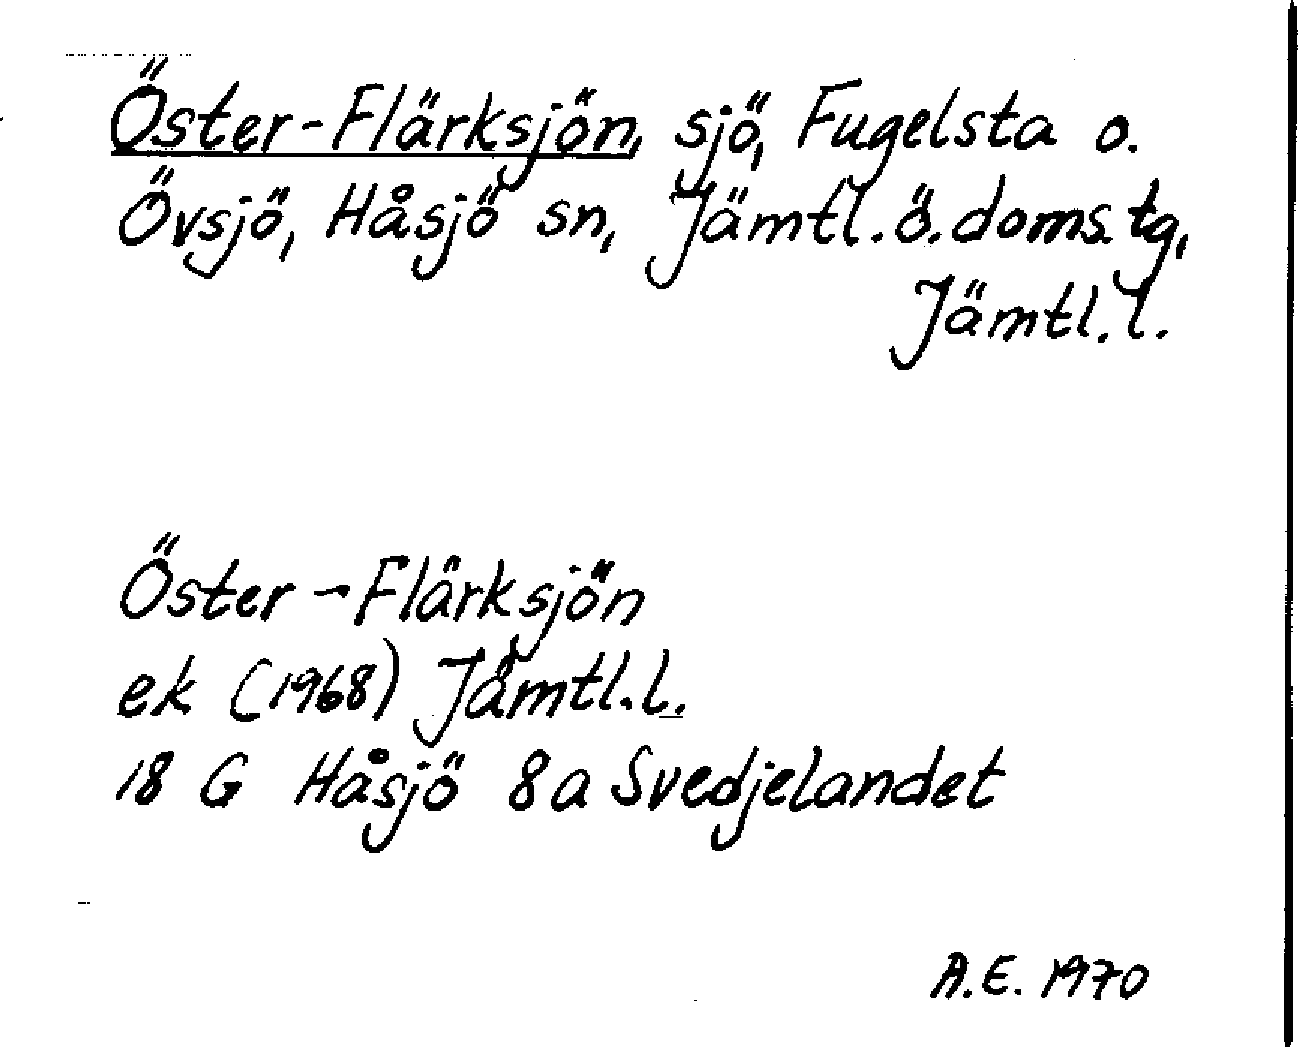 Öster-Flärksjön, sjö, Fugelsta o.
Övsjö, Håsjö sn, Jämtl. ö. doms. tg,
Jämtl. l.
Öster-Flärksjön
ek (1968) Jämtl. l.
18 G Håsjö 8a Svedjelandet
A.E. 1970